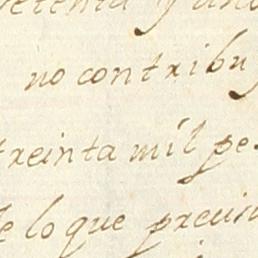 no contribu
treinta mil pe
lo que precis